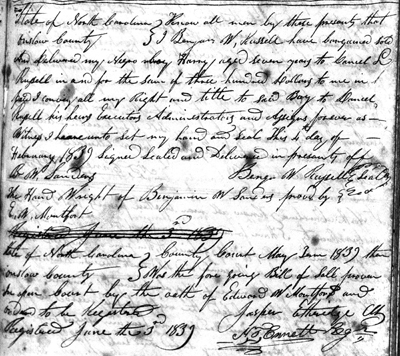 State of North Carolina } Know all men by these presents that
Onslow County } I Benjamin W. Russell have bargained sold
and delivered my Negro boy Harry, aged seven years to Daniel L
Russell in and for the sum of three hundred Dollars to me in
paid I convey all my Right and title to said Boy to Daniel
Russell his heirs Executors Administrators and Assigns forever as
Witness I hereunto set my hand and Seal This 4th day of
Februarary 1839 Signed Sealed and Delivered in presents off
B. W. Sanders Benja W. Russell Seal
The Hand Wright of Benjamin W Sanders proven by
E. W. Montfort
Registered June the 3rd 1839
State of North Carolina } County Court May Term 1839 then
Onslow County } Was the fore going Bill of Sell proven
in open Court by the oath of Edward W Montfort and
ordered to be Registered Jasper Etheridge Clk
Registered June the 3rd 1839